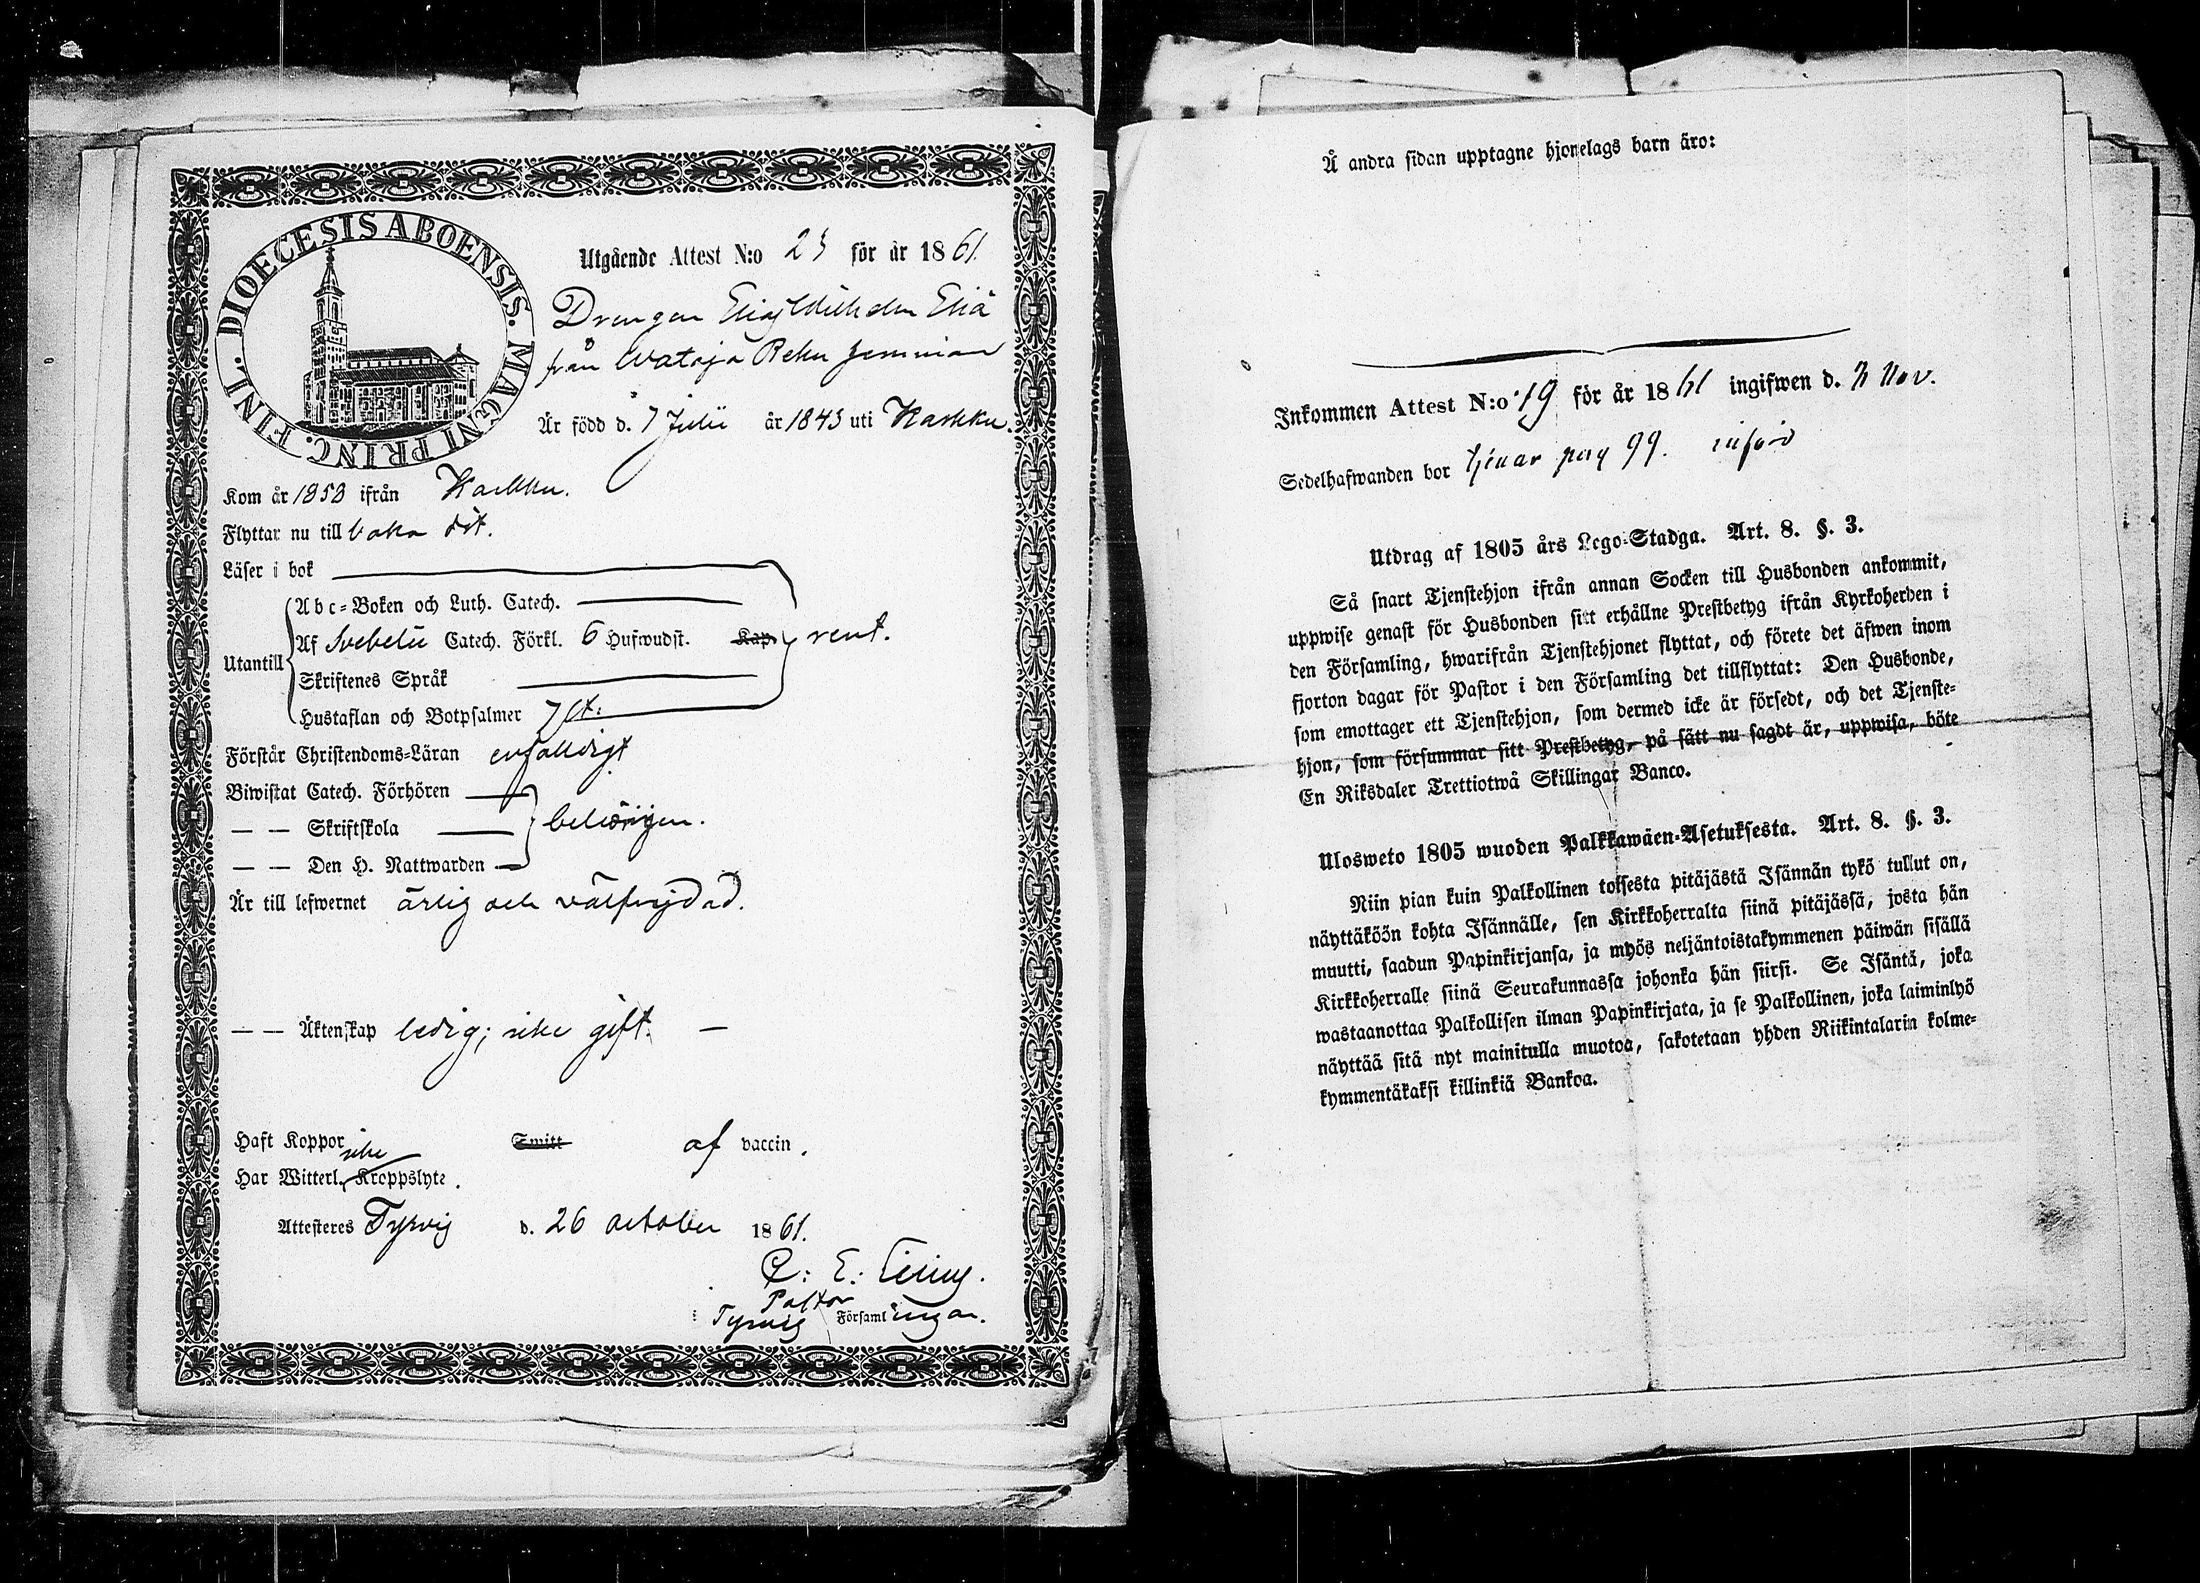 DIOECESIS ABOENSIS. MAGNI PRINC. FINL.
Utgående Attest N:o 23 för år 1861.
Drengen Elias Elia
från Wataja Reku
Är född d. 7 Julii år 1843 uti Karkku.
Kom år 1858 ifrån Karkku.
Flyttar nu till baka dit.
Läser i bok
Abc-Boken och Luth. Catech.
Af Svebelii Catech. Förkl. 6 Hufwudst. Kap. rent.
Utantill
Skriftenes Språk
Hustaflan och Botpsalmer 7 st:
Förstår Christendoms-Läran enfaldigt
Biwistat Catech. Förhören
— — Skriftskola behörigen.
— — Den H. Nattwarden
Är till lefwernet ärlig och välfrejdad.
— — Äktenskap ledig; icke gift. —
Haft Koppor Smitt af vaccin.
icke
Har Witterl. Kroppslyte.
Attesteres Tyrvis d. 26 october 1861.
C: E:
Pastor
i Tyrvis Församlingar.
Å andra sidan upptagne hjonelags barn äro:
Inkommen Attest N:o 19 för år 1861 ingifwen d. Nov.
Sedelhafwanden bor tjenar pag 99. införd
Utdrag af 1805 års Lego-Stadga. Art. 8. §. 3.
Så snart Tjenstehjon ifrån annan Socken till Husbonden ankommit,
uppwise genast för Husbonden sitt erhållne Prestbetyg ifrån Kyrkoherden i
den Församling, hwarifrån Tjenstehjonet flyttat, och förete det äfwen inom
fjorton dagar för Pastor i den Församling det tillflyttat: Den Husbonde,
som emottager ett Tjenstehjon, som dermed icke är försedt, och det Tjenste-
hjon, som försummar sitt Prestbetyg, på sätt nu sagdt är, uppwisa, böte
En Riksdaler Trettiotwå Skillingar Banco.
Ulosweto 1805 wuoden Palkkawäen-Asetuksesta. Art. 8. §. 3.
Niin pian kuin Palkollinen toisesta pitäjästä Isännän tykö tullut on,
näyttäköön kohta Isännälle, sen Kirkkoherralta siinä pitäjässä, josta hän
muutti, saadun Papinkirjansa, ja myös neljäntoistakymmenen päiwän sisällä
Kirkkoherralle siinä Seurakunnassa johonka hän siirsi. Se Isäntä, joka
wastaanottaa Palkollisen ilman Papinkirjata, ja se Palkollinen, joka laiminlyö
näyttää sitä nyt mainitulla muotoa, sakotetaan yhden Riikintalarin kolme-
kymmentäkaksi killinkiä Bankoa.